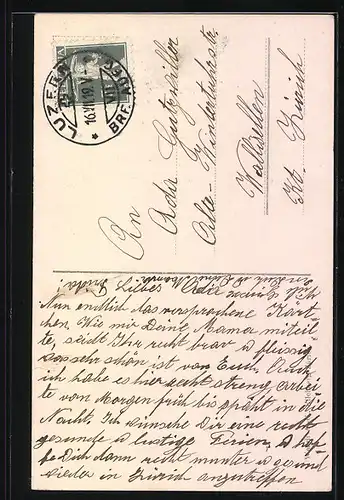 HELVETIA
LUZERN
16.VII.19.V
BRF. AUFG.
An
Adir Gutzwiller
Alte-Winterthurstr.
Wallisellen
Kt. Zürich
Liebes Adir
Frida!
Nun endlich das versprochene Kärt-
chen. Wie mir Deine Mama mitteil-
te, seid Ihr recht brav u fleissig
was sehr schön ist von Euch. Auch
ich habe es hier recht streng, arbei-
te von Morgen früh bis späht in die
Nacht. Ich wünsche Dir eine recht
gesunde u lustige Ferien, u hof-
fe Dich dann recht munter u gesund
wieder in Zürich anzutreffen